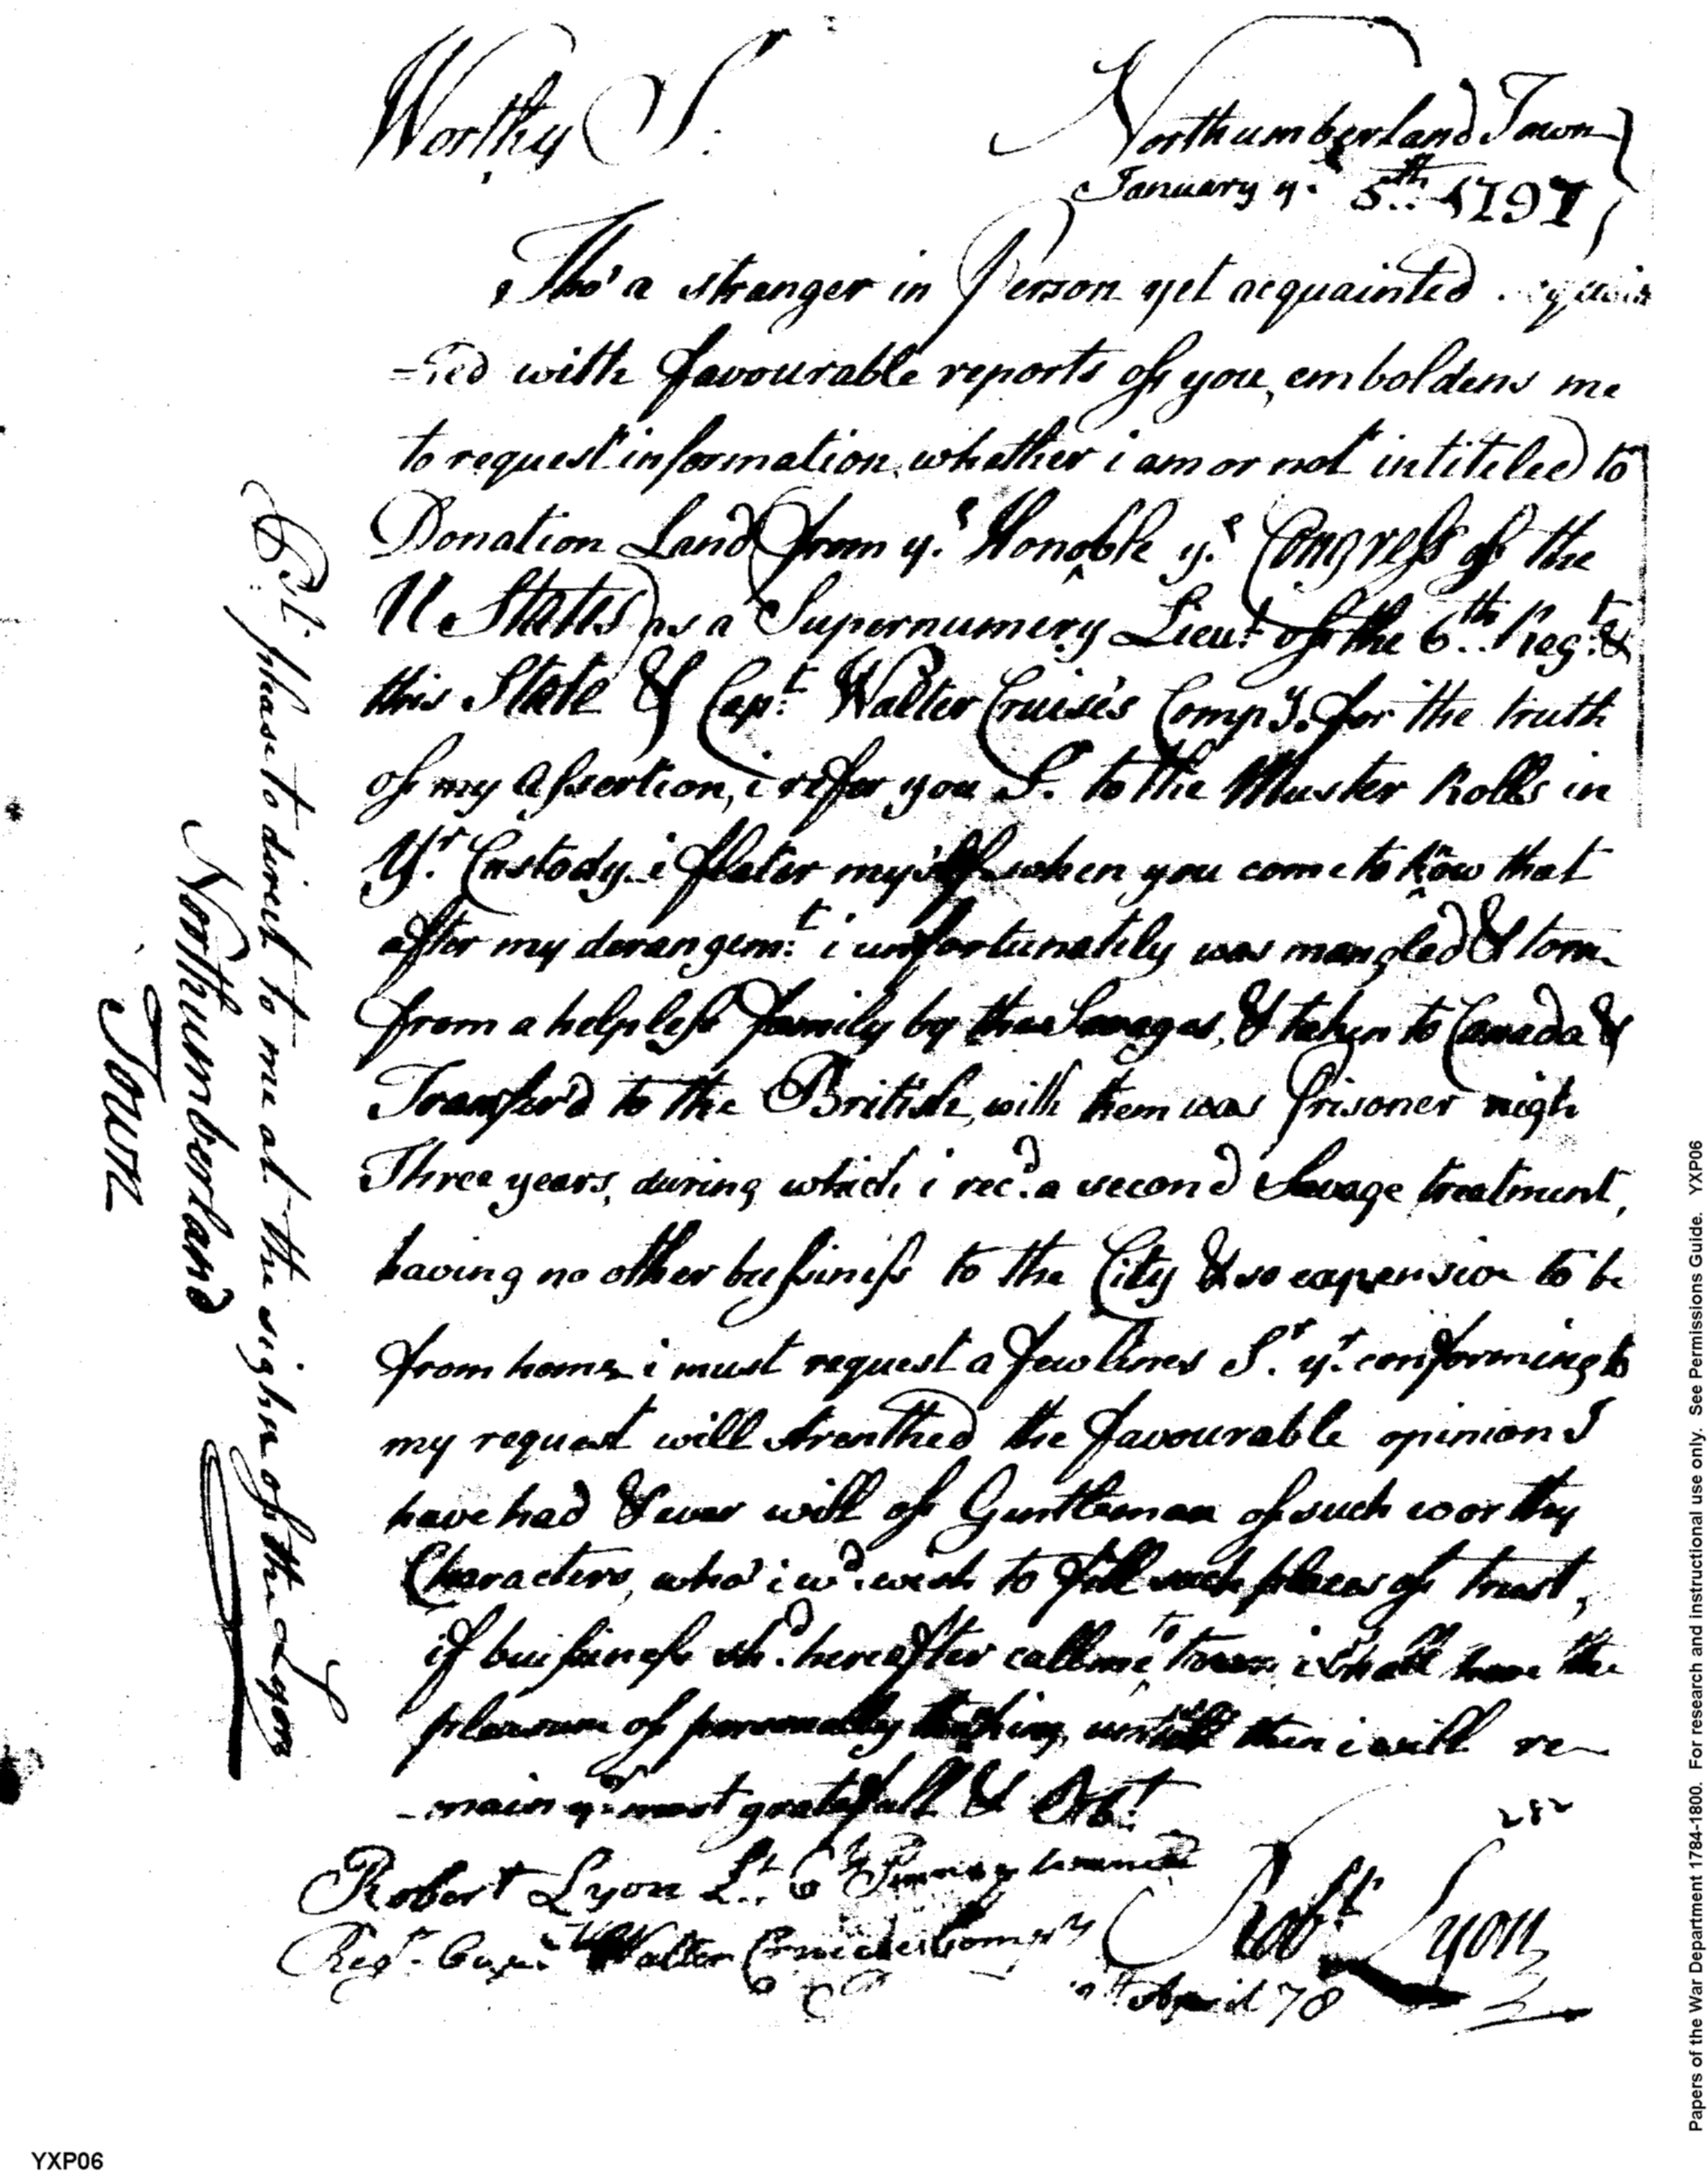 Worthy Sr.
Northumberland Town
January ye 5th.. 1797
Tho' a stranger in Person yet acquainted
=ted with favourable reports of you, emboldens me
to request information, whether i am or not intiteled to
Donation Land from ye Honoble ye Congress of the
U States as a Supernumery Lieut. of the 6th.. Regt. &
this State & Capt. Walter Cruise's Compy. for the truth
of my Assertion, i refer you Sr. to the Muster Rolls in
Yr. Custody i flater myself when you come to know that
after my derangemt. i unfortunately was mangled & torn
from a helpless family by the Savages, & taken to Canada &
Transfer'd to the British, with them was Prisoner nigh
Three years, during which i recd. a second Savage treatment,
having no other bussiness to the City & so expensive to be
from home i must request a few lines Sr. yr. conforming to
my request will strenthed the favourable opinion I
have had & ever will of Gentleman of such worthy
Characters, who' i wd. wish to fill such places of trust,
if buissiness shd. hereafter call me to town i shall have the
pleasure of personally thanking, untill then i will re-
-main yr. most gratefull & Obt.
282
Robt. Lyon
Robert Lyon Lt. 6th Pennsylvania
Regt. Capt. Walter Compy
April 78
P.S. please to direct to me at the sighn of the Lyon
Northumberland
Town
Papers of the War Department 1784-1800. For research and instructional use only. See Permissions Guide. YXP06
YXP06